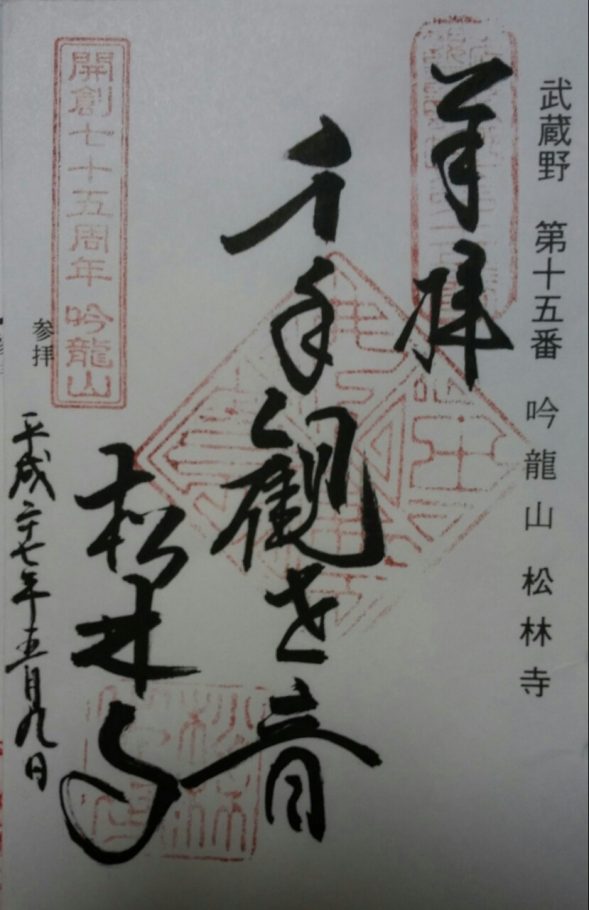 武蔵野 第十五番 吟龍山 松林寺
奉拝
千手観世音
松林寺
開創七十五周年 吟龍山
参拝
平成二十七年五月九日